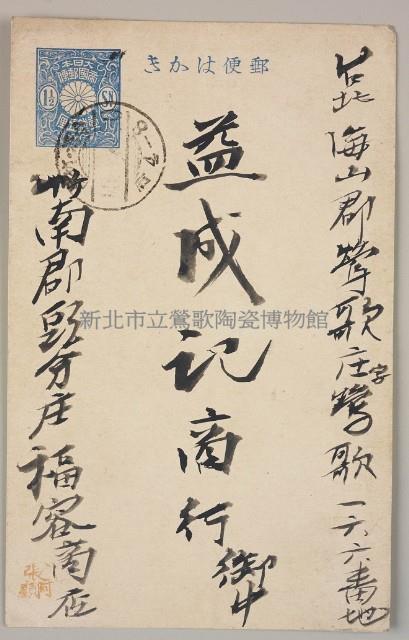 郵便はかき
大日本帝國郵便
1½ Sn
台北海山郡鶯歌庄字鶯歌一六六番地
益成記商行御中
竹南郡頭分庄福容商店
新北市立鶯歌陶瓷博物館